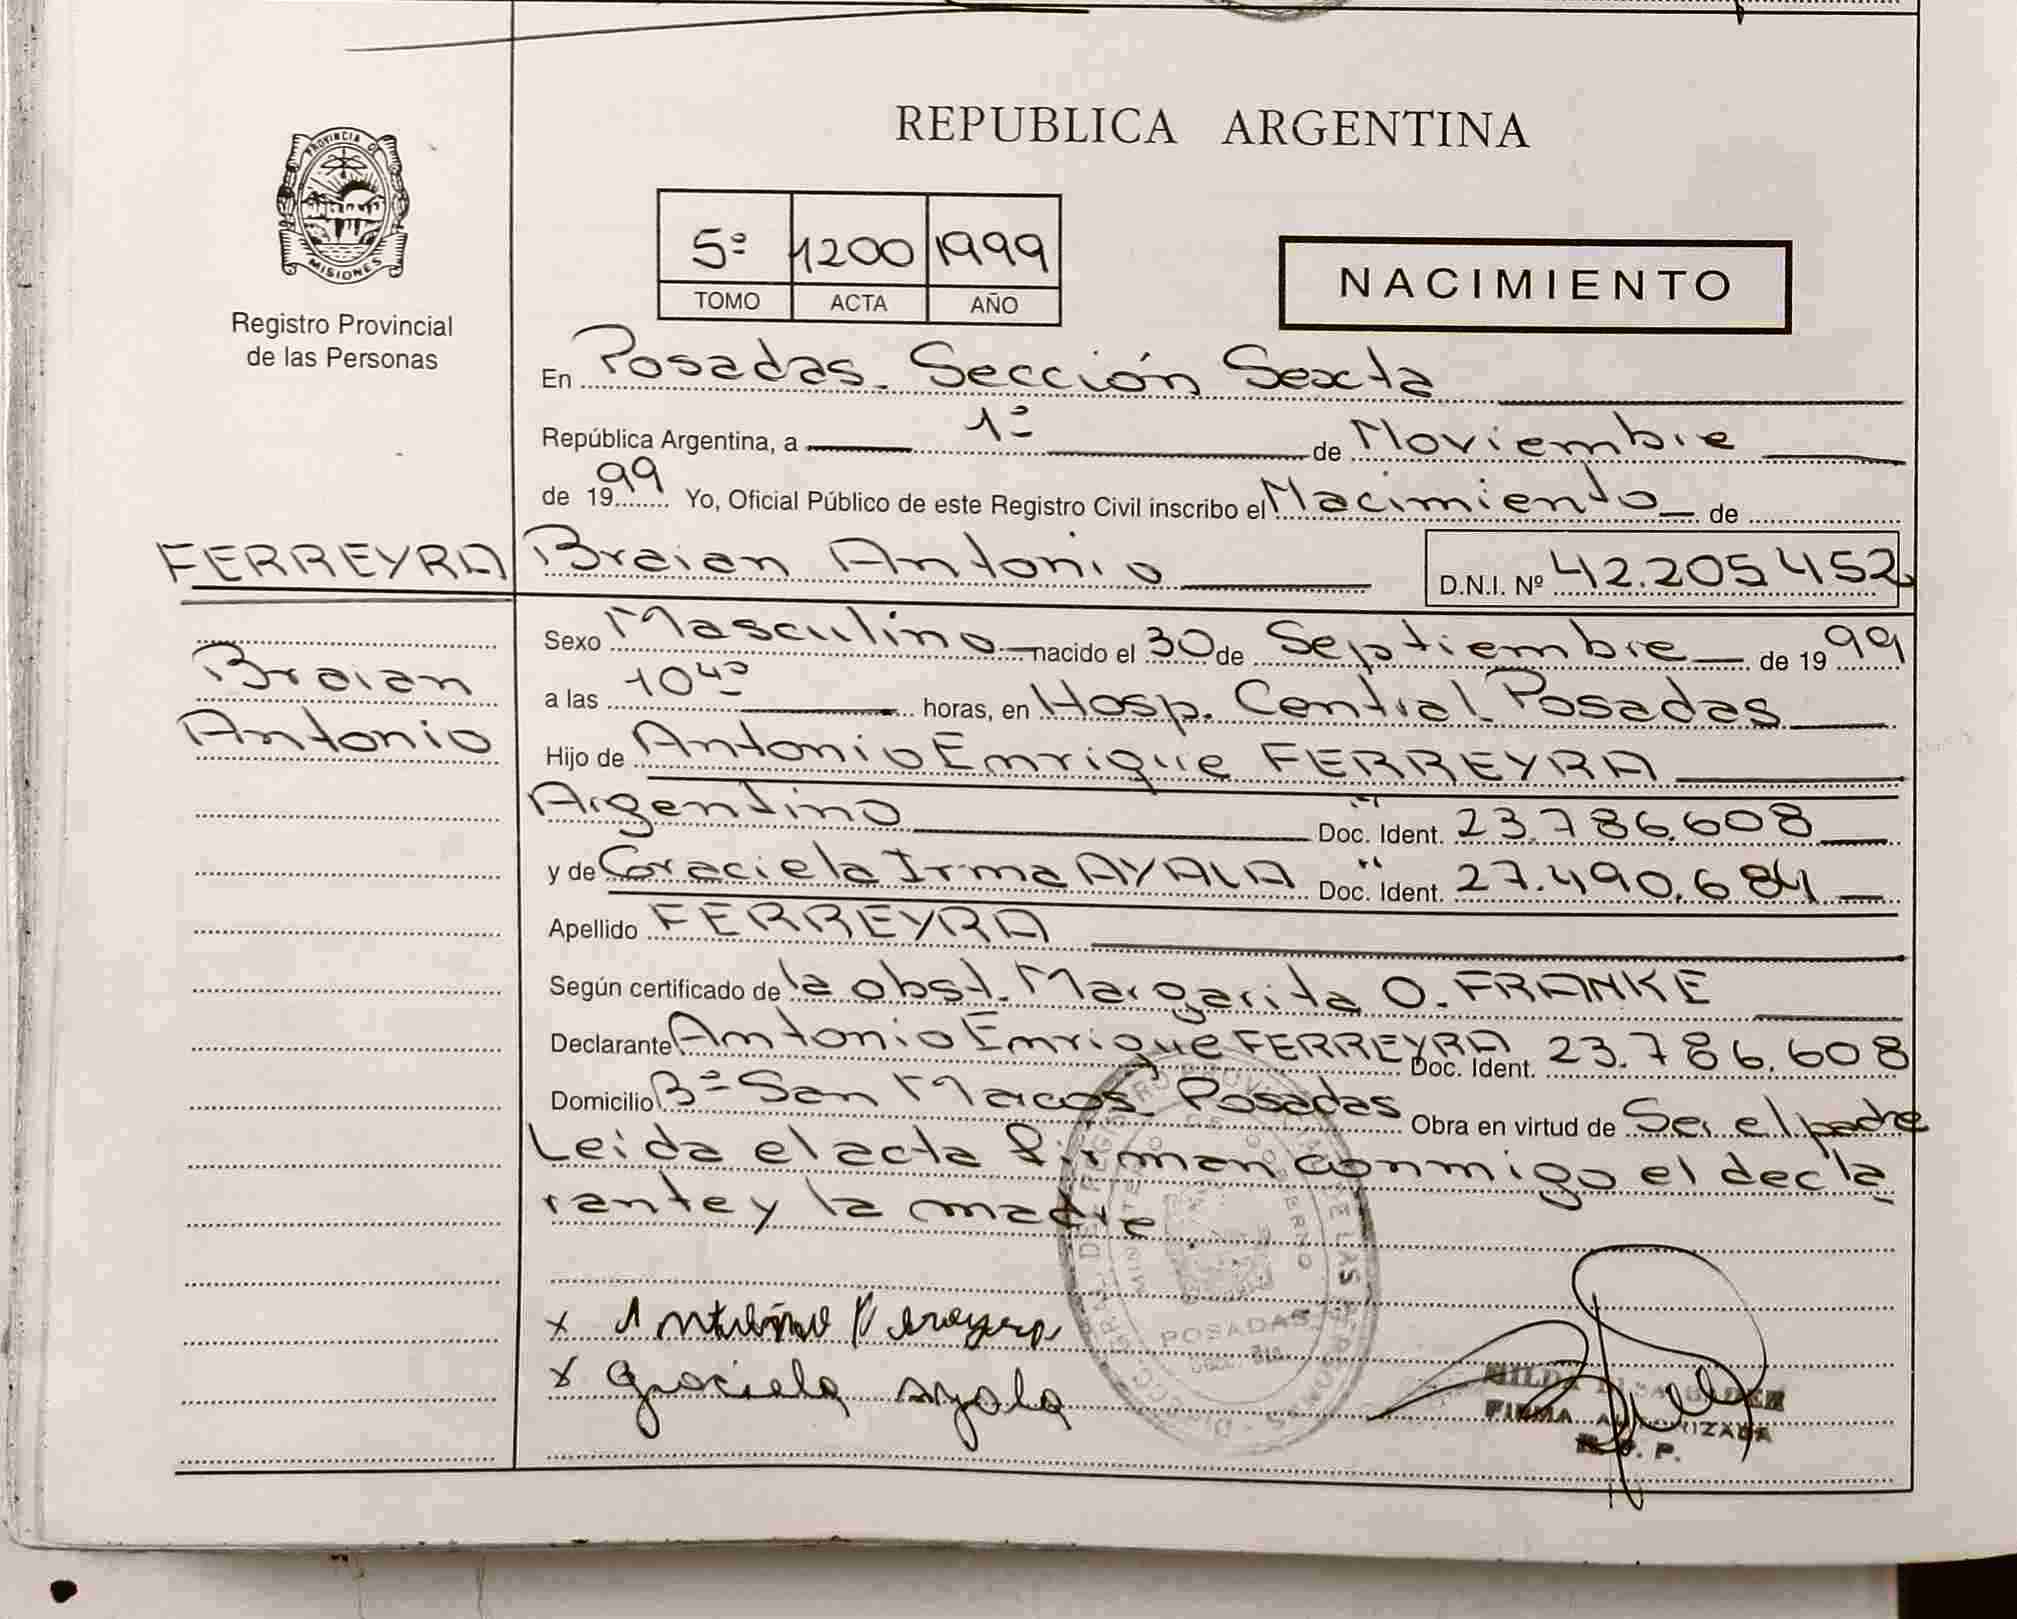 REPUBLICA ARGENTINA
PROVINCIA D
MISIONES
Registro Provincial
de las Personas
5º 1200 1999
TOMO ACTA AÑO
NACIMIENTO
En Posadas. Sección Sexta
República Argentina, a 1º de Noviembre
de 1999 Yo, Oficial Público de este Registro Civil inscribo el Nacimiento de
FERREYRA Braian Antonio D.N.I. Nº 42.205.452
Sexo Masculino nacido el 30 de Septiembre de 1999
Braian
a las 10⁴⁵ horas, en Hosp. Central Posadas
Antonio
Hijo de Antonio Enrique FERREYRA
Argentino Doc. Ident. 23.786.608
y de Graciela Irma AYALA Doc. Ident. 27.490.684
Apellido FERREYRA
Según certificado de la obst. Margarita O. FRANKE
Declarante Antonio Enrique FERREYRA Doc. Ident. 23.786.608
Domicilio Bº San Marcos Posadas Obra en virtud de Ser el padre
Leida el acta firman conmigo el decla
rante y la madre.
x Antonio Ferreyra
x Graciela Ayala
POSADAS
HILDA
FIRMA AUTORIZADA
R. P. P.